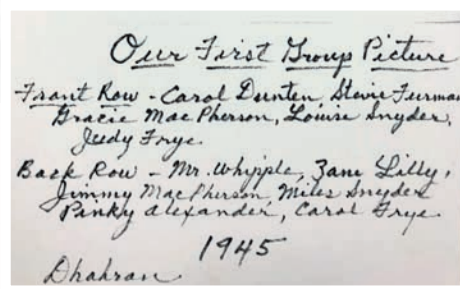 Our First Group Picture
Front Row - Carol Dunten, Stevie Furman
Gracie MacPherson, Louise Snyder,
Judy Frye.
Back Row - Mr. Whipple, Zane Lilly,
Jimmy MacPherson, Miles Snyder
Pinky Alexander, Carol Frye.
1945
Dhahran